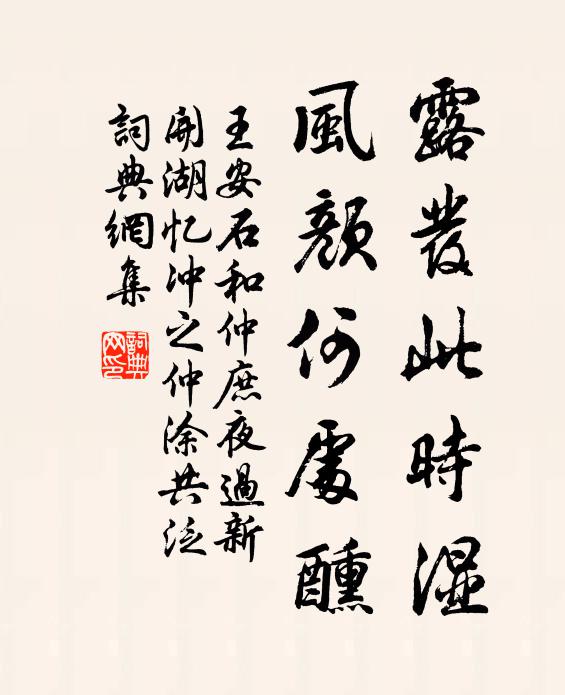 露發此時湿
風顏何處醺
王安石和仲庶夜過新
開湖忆冲之仲涂共泛
詞典網集
詞典网印